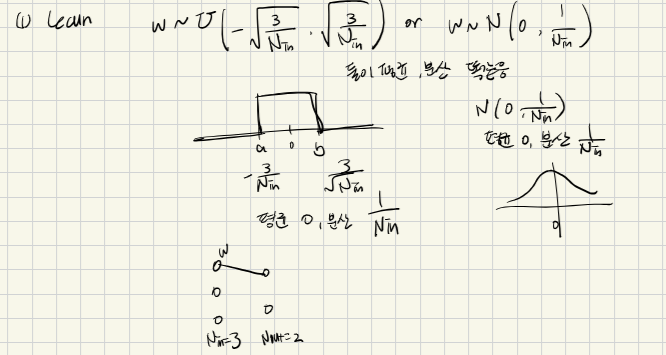 (1) Lecun   w ~ U(-√(3/Nin), √(3/Nin)) or w ~ N(0, 1/Nin)
둘이 평균, 분산 똑같음
N(0, 1/Nin)
평균 0, 분산 1/Nin
a 0 b
-3/Nin   3/√Nin
평균 0, 분산 1/Nin
0
w
Nin=3 Nout=2